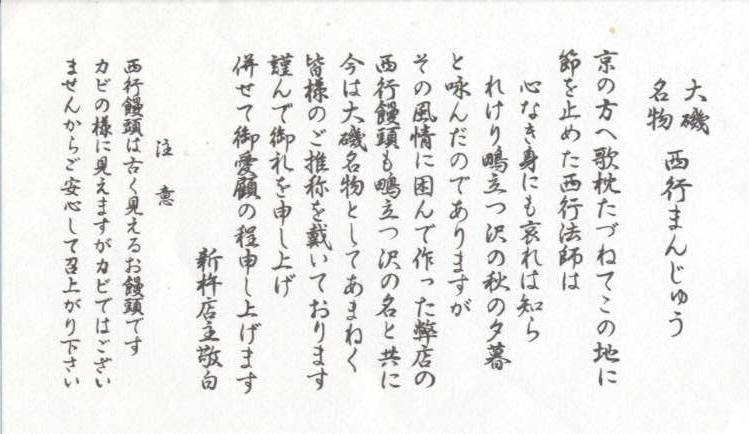 大磯
名物
西行まんじゅう
京の方へ歌枕たづねてこの地に
節を止めた西行法師は
心なき身にも哀れは知ら
れけり鴫立つ沢の秋の夕暮
と咏んだのでありますが
その風情に因んで作った弊店の
西行饅頭も鴫立つ沢の名と共に
今は大磯名物としてあまねく
皆様のご推称を戴いております
謹んで御礼を申し上げ
併せて御愛顧の程申し上げます
新杵店主敬白
注意
西行饅頭は古く見えるお饅頭です
カビの様に見えますがカビではござい
ませんからご安心して召上がり下さい